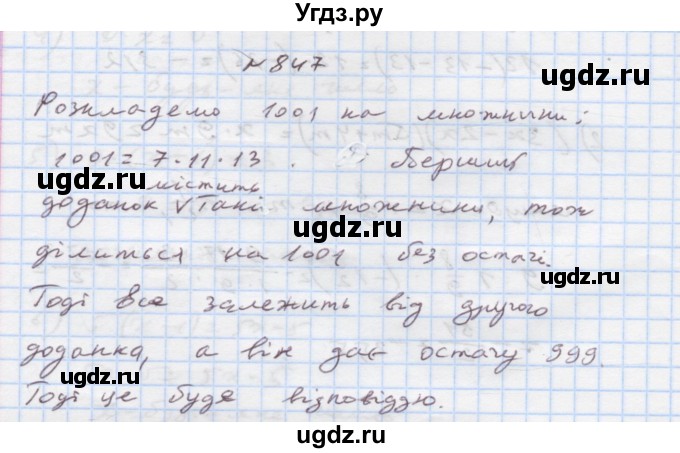 Угдз.ру
№ 847
ugdz.ru
Розкладемо 1001 на множники:
ugdz.ru
1001 = 7·11·13 .
ugdz.ru
містить
доданок √ Такі множники, тож
ugdz.ru
ділиться на 1001 без остачі.
ugdz.ru
Тоді все залежить від другого
ugdz.ru
доданка, а він дає остачу 999.
ugdz.ru
Тоді це буде відповіддю.
ugdz.ru
ugdz.ru